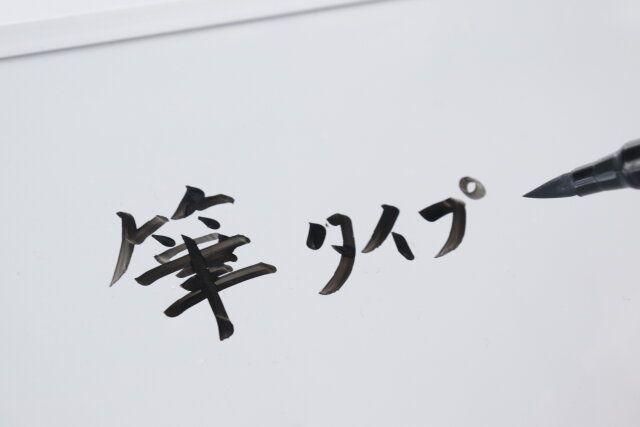 筆タイプ